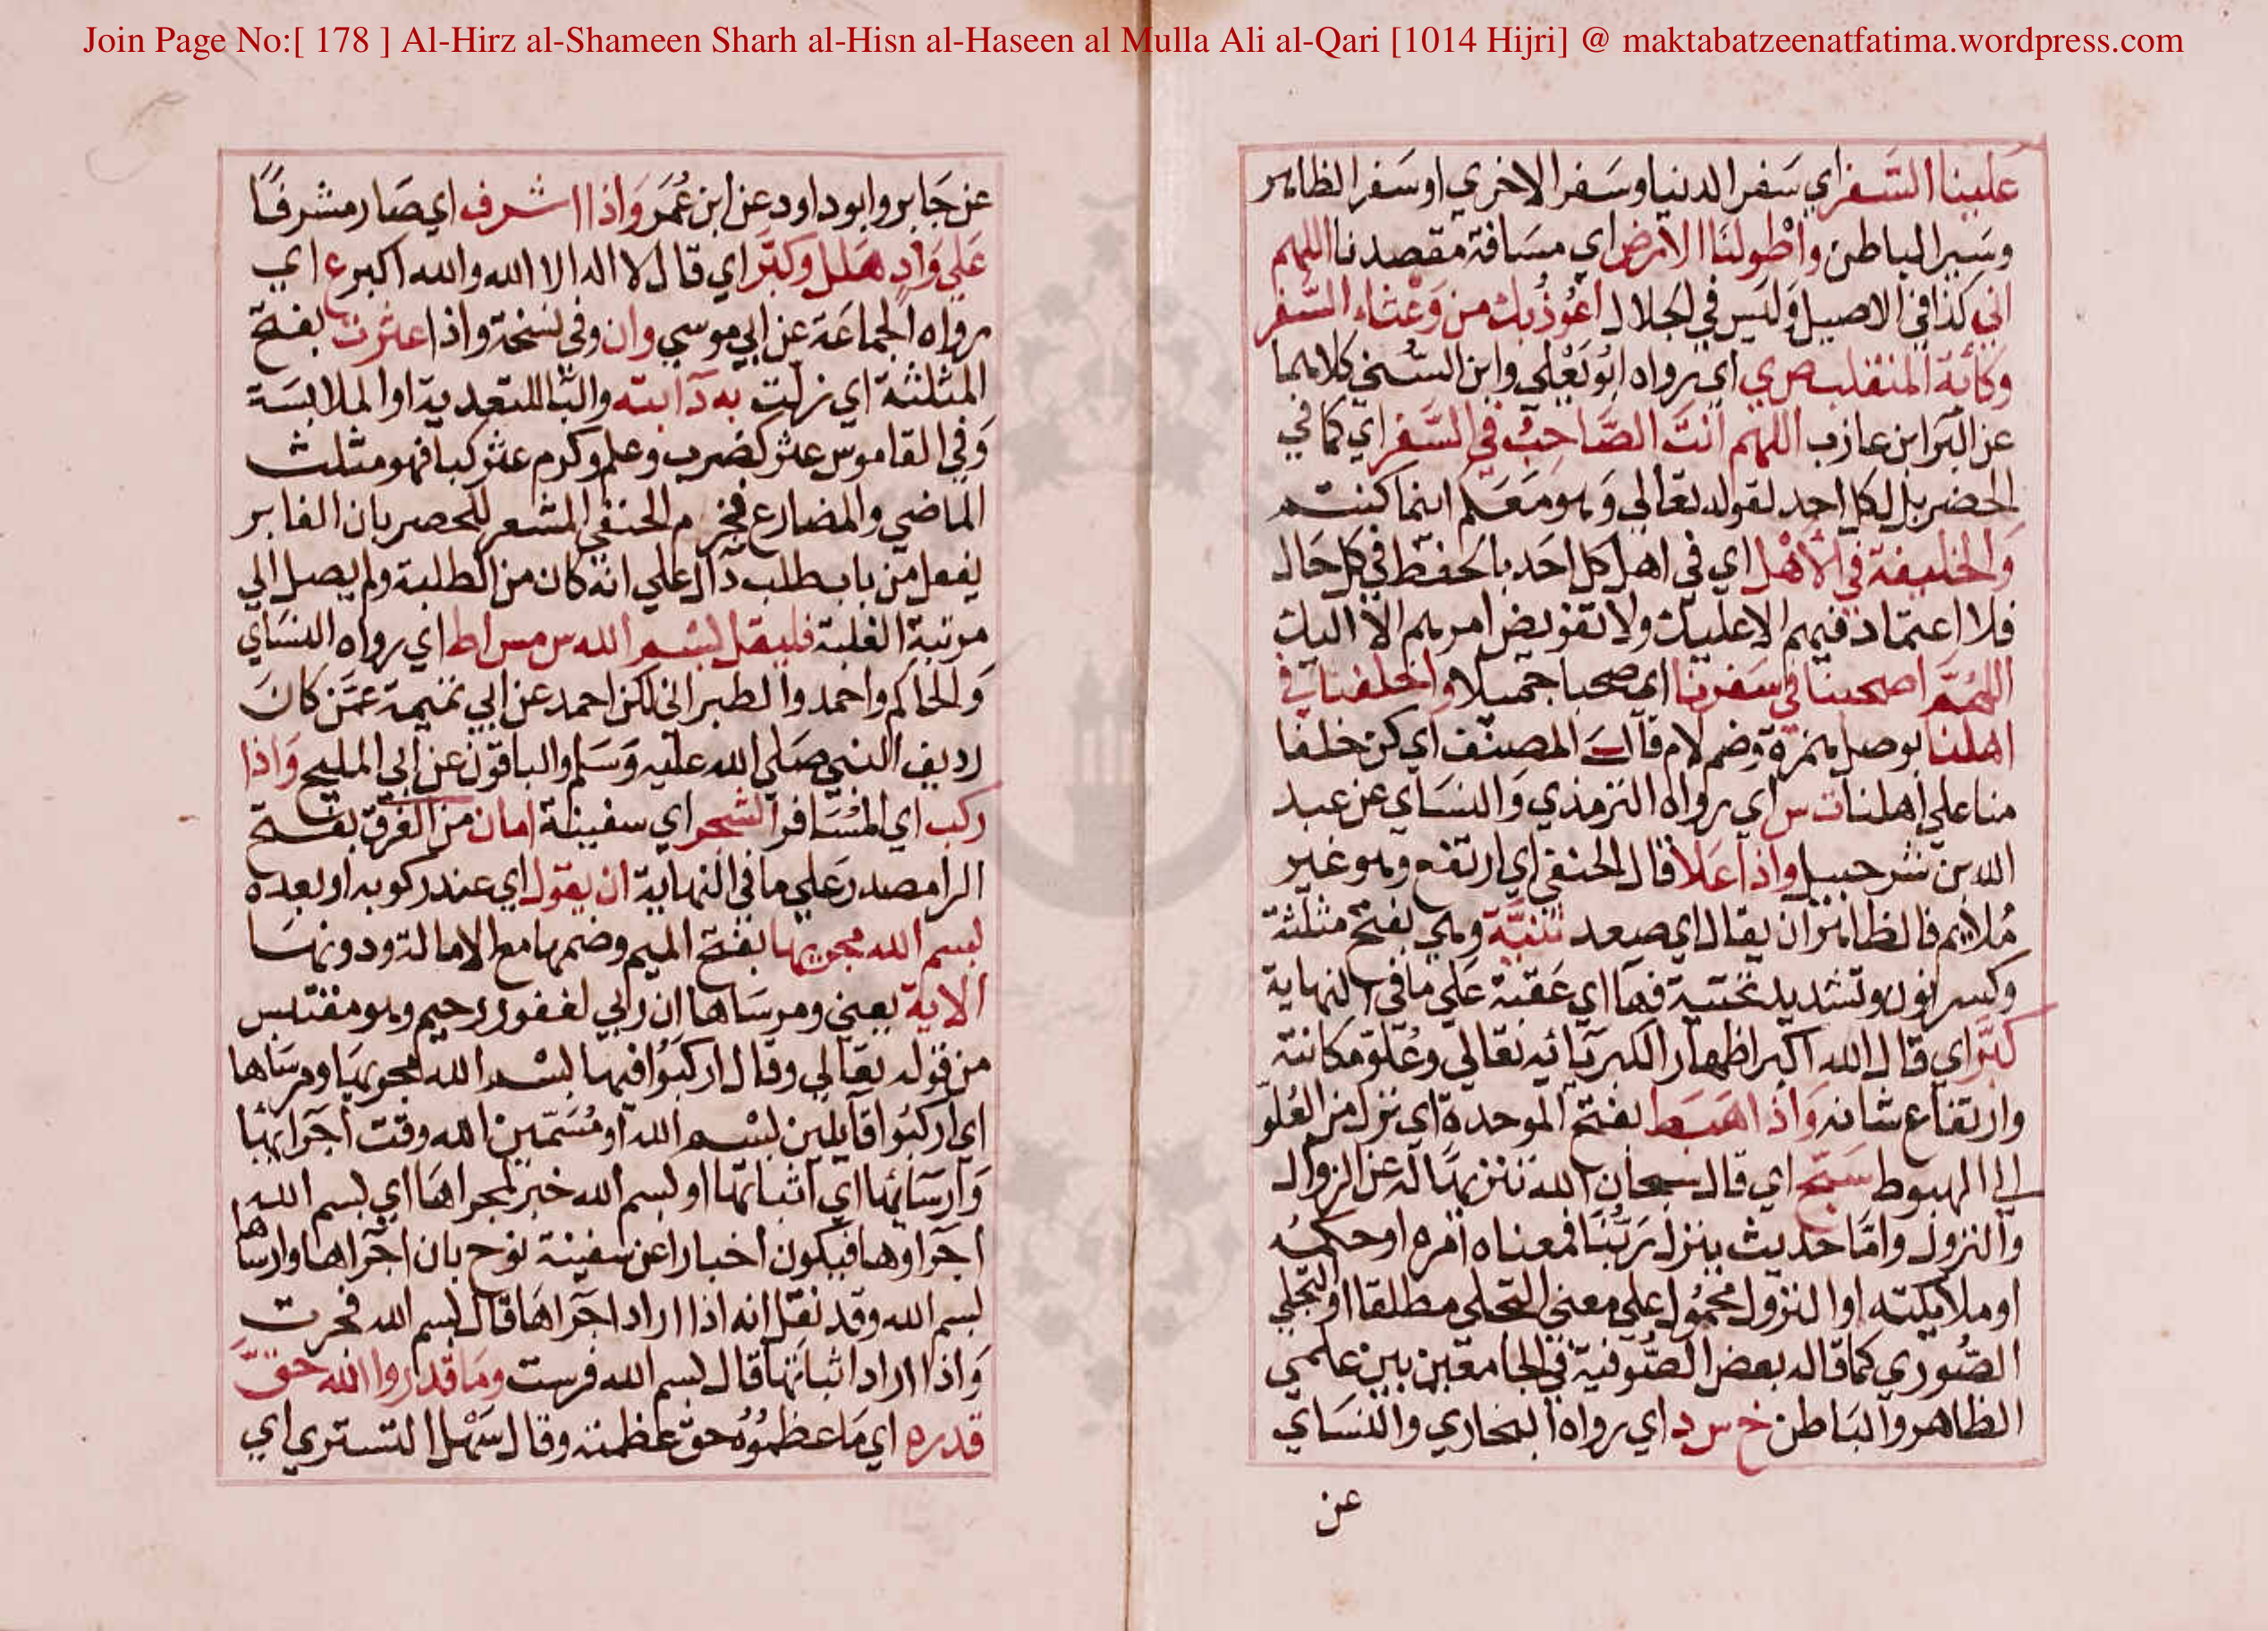 Join Page No:[ 178 ] Al-Hirz al-Shameen Sharh al-Hisn al-Haseen al Mulla Ali al-Qari [1014 Hijri] @ maktabatzeenatfatima.wordpress.com
علينا السَّفر اي سَفر الدنيا وسَفر الاخري او سَفر الظاهر
وسَير الباطن واطْولنَا الارض اي مسَافة مقصدنا اللهم
اني كذا في الاصيل وَليَس في الجلال اعُوذُ بك من وَعْثاء السَّفر
وكآبة المنقلب ص ي اي رواه ابُو يَعْلي وابن السُّني كلاهما
عن البَرا بن عازب اللهم انتَ الصَّاحِبُ في السَّفر اي كما في
الحضر بل لكل احد لقوله تعَالي وَهو مَعَكم اينما كنتم
وَالخليفة في الأهْل اي في اهل كل احَد بالحفظ في كل حَال
فلا اعتمَاد فيهم الا عليك ولا تفويض امرهم الا اليك
اللهُمَّ اصحبنا في سَفرنا اي صحبا جميلا واخلفنا في
اهلنا بوصل همزة وضم لام قال المصنّف اي كن خلفا
منا علي اهلنا ت س اي رواه الترمذي وَالنسَاي عن عبد
الله بن سرجيس واذا عَلا قال الحنفي اي ارتفع وهو غير
مُلايم فالظاهر ان يقال اي صعد ثنيَّة وهي بفتح مثلثة
وكسر نون وتشديد تحتية فهَا اي عَقبة عَلي ما في النهاية
كبَّر اي قال الله اكبر اظهار الكبريائه تعالي وعُلوّ مكانته
وارتفاع شانه وَاذا هَبَط بفتح الموحدة اي نزل من العُلوّ
الي الهبوط سَبّح اي قال سبحان الله تنزيهًا له عن الزوال
والنزول وامّا حديث ينزل رَبُّنَا فمعناه امره او حكمُه
او ملايكته او النزول محمُول علي معني التجلي مطلقا او التجلي
الصّوري كما قاله بعض الصُّوفية في الجامعين بين علمي
الظاهر والبَاطن خ س د اي رواه البخاري والنسَاي
عن
عن جَابر وابو داود عن ابن عُمَر وَاذا اشرف اي صَار مشرفًا
عَلي وَادٍ هَلل وكبّر اي قال لا اله الا الله والله اكبر ع اي
رواه الجماعَة عن ابي موسي وان وفي نسخة واذا عثرت بفتح
المثلثة اي زلت به دآبته والبا للتعدية او الملابسَة
وَفي القاموس عثر كضرب وعلم وكرم عثر كبا فهو مثلث
الماضي والمضارع فجزم الحنفي المشعر للحصر بان الغابر
يفعل من باب طلب دَال علي انه كان من الطلبة ولم يصل الي
مرتبة الغلبة فليقل بسْم الله س مس ا ط اي رواه النسَاي
وَالحاكم واحمد والطبراني لكن احمد عن ابي تميمة عَمّن كانَ
رديف النبي صَلي الله عليه وَسَلم والباقون عن ابي المليح وَاذا
ركب اي المُسَافر البحر اي سفينة امان من الغرق بفتح
الرا مصدر عَلي ما في النهاية ان يقول اي عند ركوبه او بعده
بسم الله مجريها بفتح الميم وضمها مع الامالة ودونهَا
الاية يعني ومرسَاها ان ربي لغفور رحيم وهو مقتبس
من قوله تعَالي وقال اركبُوا فيها بسْم الله مجريهَا ومرسَاها
اي اركبُوا قايلين بسْم الله او مُسَمّين الله وقت اجرَائها
وَارسَائهَا اي اثباتها او بسم الله خبر لمجراهَا اي بسم الله
اجراوها فيكون اخبارا عن سفينة نوح بان اجراها وارساها
بسم الله وقد نقل انه اذا اراد اجراهَا قال بسم الله فجرت
وَاذا اراد اثباتهَا قال بسم الله فرست وَمَا قدروا الله حَقَّ
قدره اي مَا عظمُوْهُ حق عظمته وقال سَهْل التستري اي